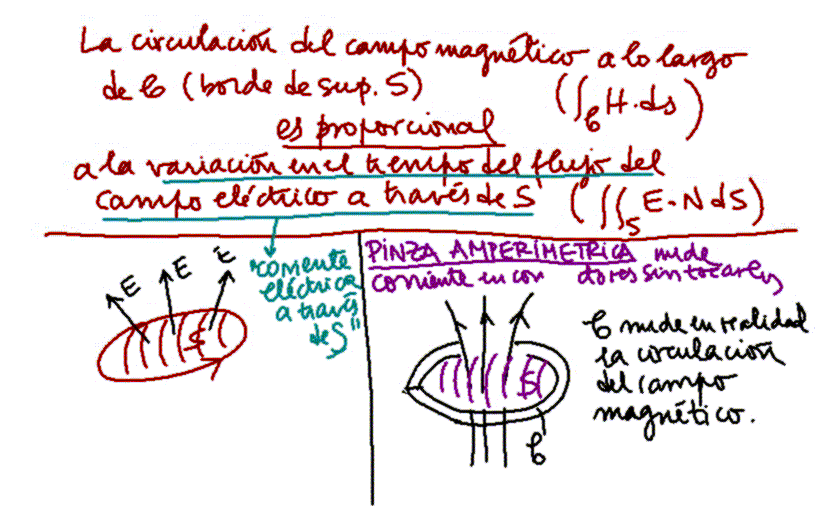 La circulación del campo magnético a lo largo
de C (borde de sup. S) (∫_C H·ds)
es proporcional
a la variación en el tiempo del flujo del
campo eléctrico a través de S (∬_S E·N dS)
E E E
S
"corriente
eléctrica
a través
de S"
PINZA AMPERIMETRICA mide
corriente en con dores sin tocarlos
S
C
C mide en realidad
la circulación
del campo
magnético.